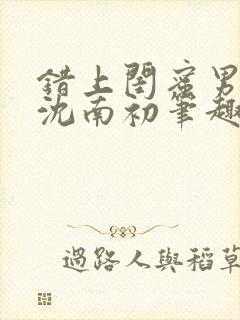 錯上閨蜜男
沈南初筆趣
過路人與稻草